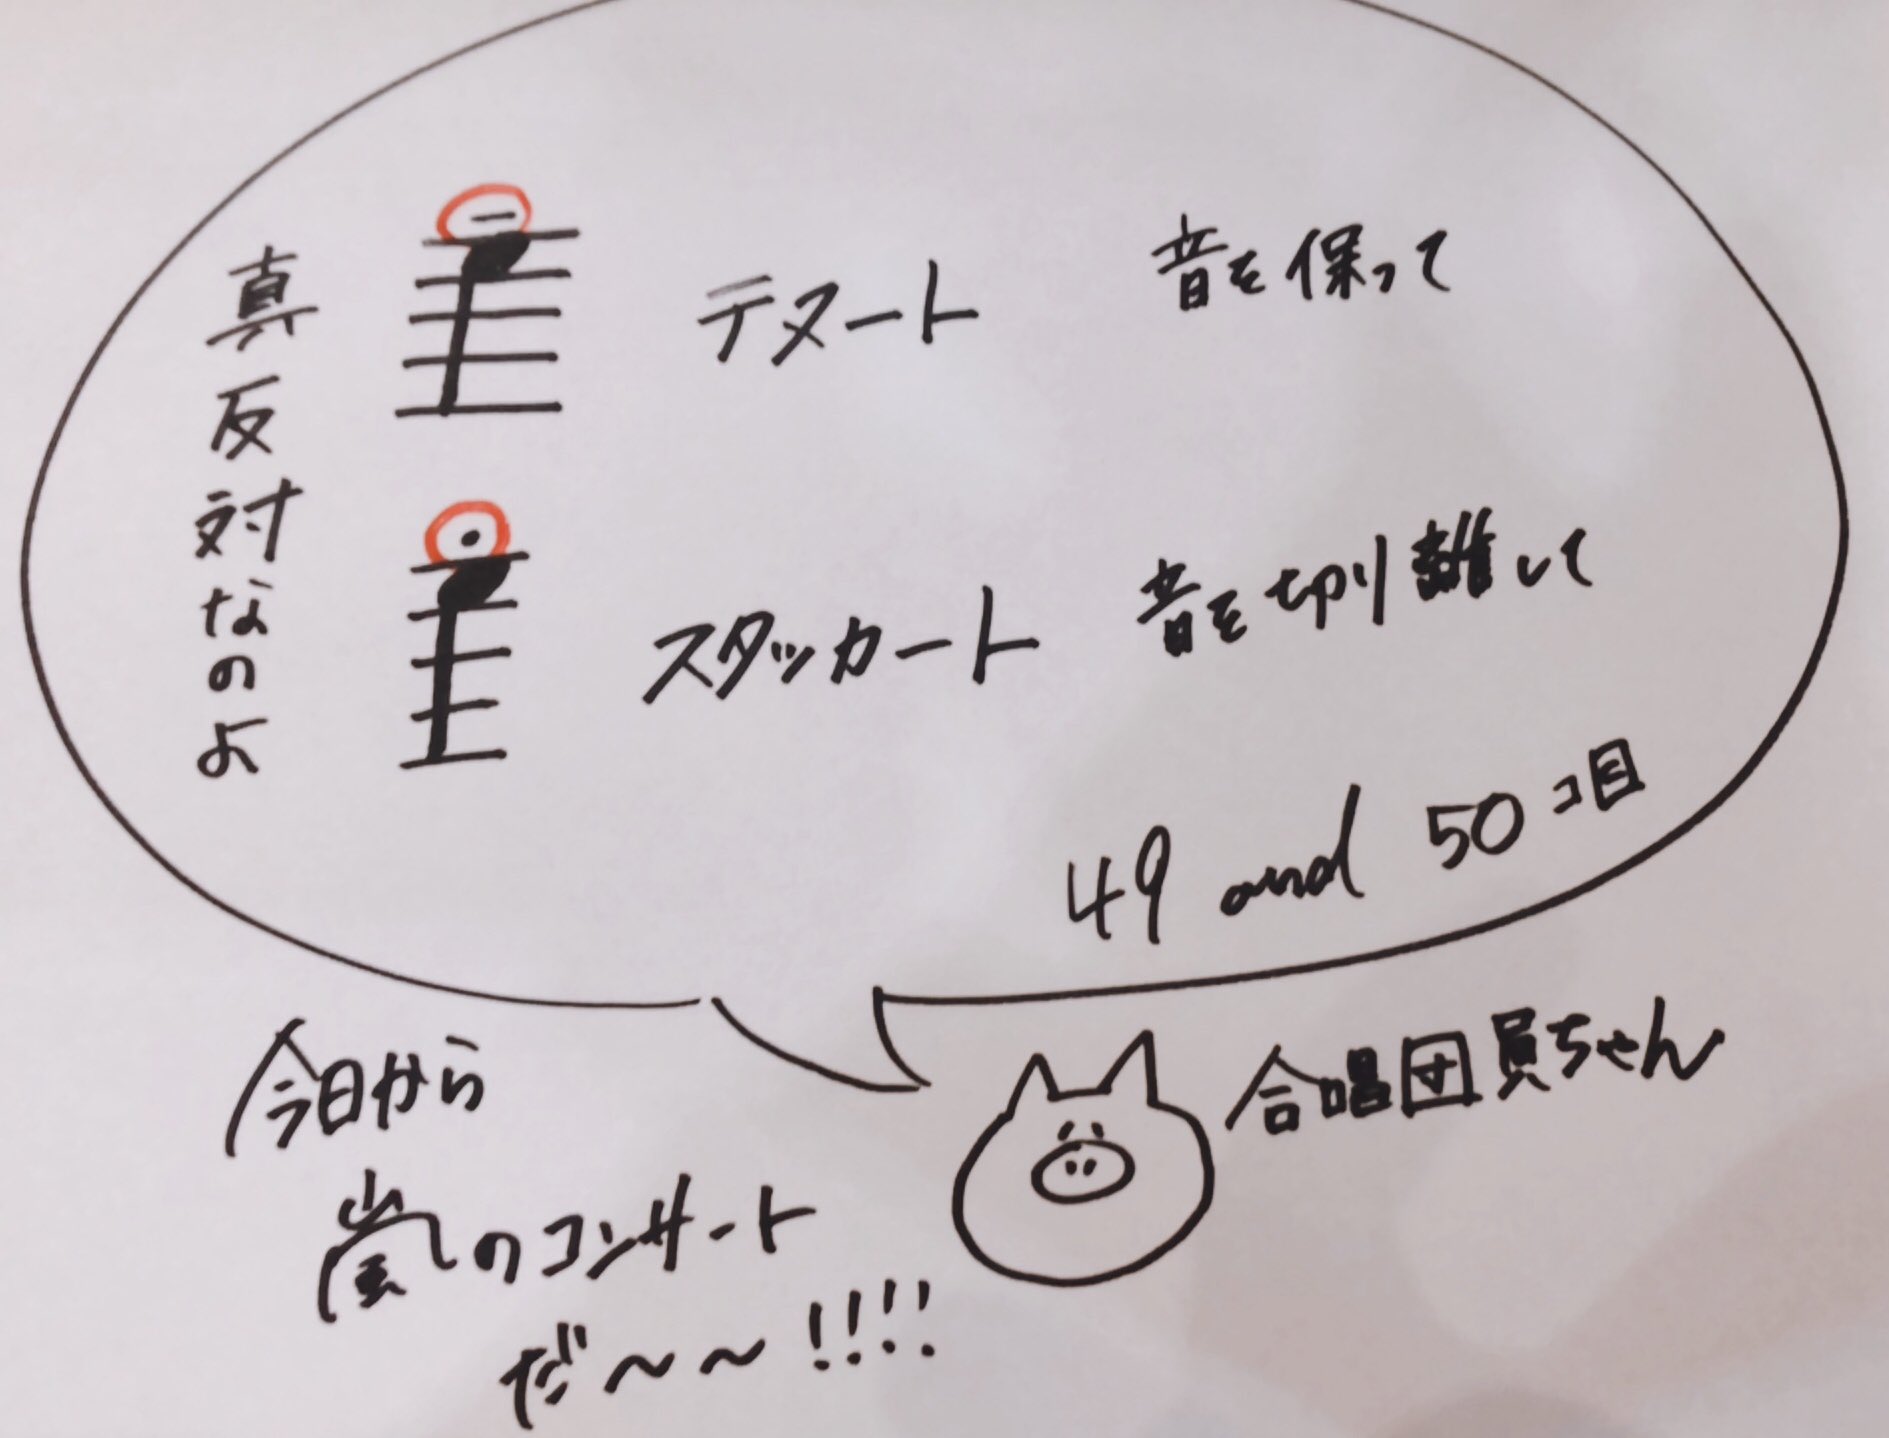 真反対なのよ
テヌート 音を保って
スタッカート 音を切り離して
49 and 50コ目
合唱団員ちゃん
今日から
嵐のコンサート
だ〜〜!!!!